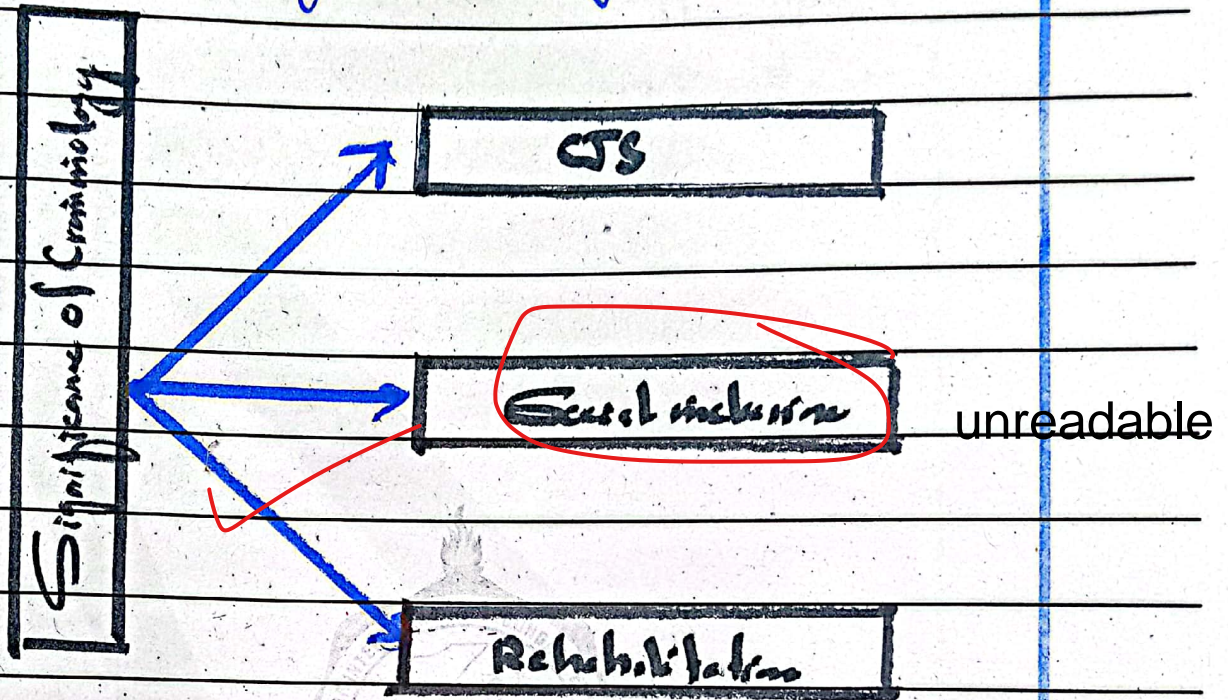 Significance of Criminology
CJS
Social inclusion
unreadable
Rehabilitation